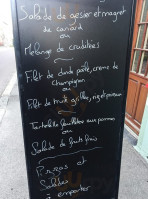 Salade de gesier et magret
de canard
ou
Melange de crudités
Filet de dinde poêlé, creme de
champignon
ou
Filet de truite grillée, riz et poireaux
Tartelette feuilletée aux pommes
ou
Salade de fruits frais
Pizzas et
Salades
à emporter